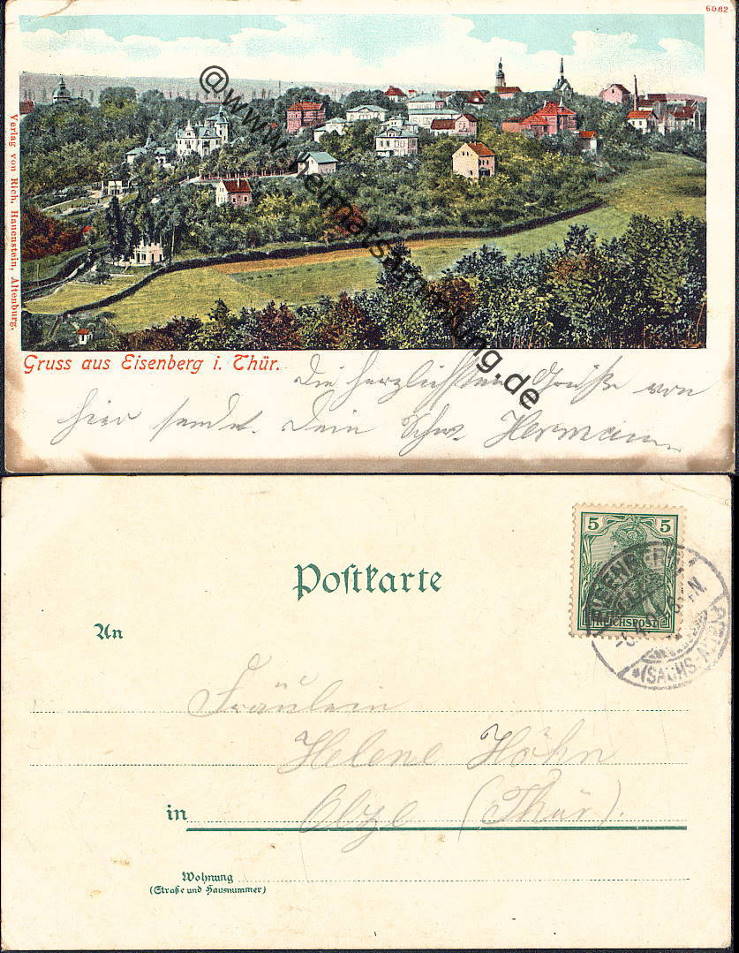 6062
@www.heimatsammlung.de
Verlag von Rich. Hauenstein, Altenburg.
Gruss aus Eisenberg i. Thür.
Die herzlichsten Grüße von
hier sendet. Dein Schw. Hermann
Postkarte
5 5
REICHSPOST
EISENBERG
(SACHS.-ALTBG.)
An
Fräulein
Helene Höhn
in Olze (Thür).
Wohnung
(Straße und Hausnummer)